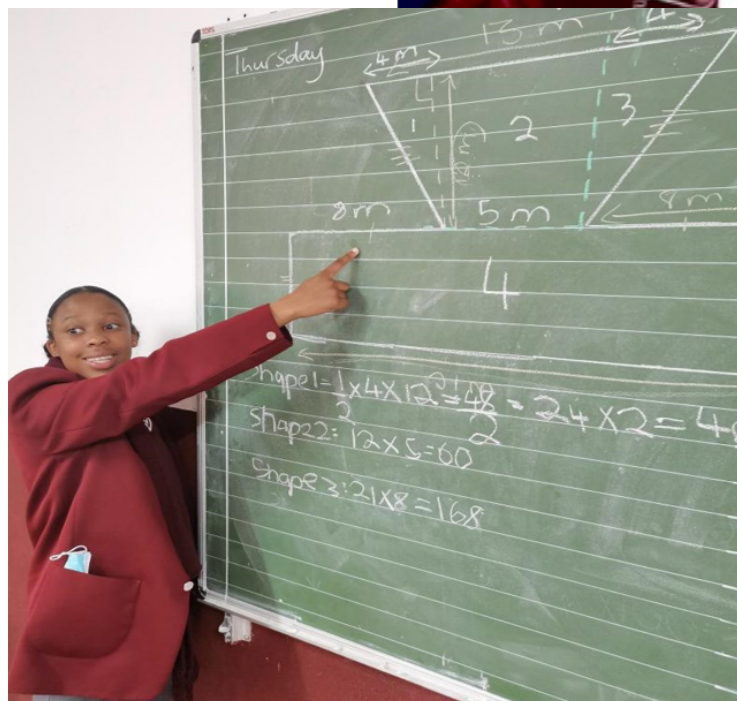 Thursday
4m 13 m 4
1 2 3
8m 5m 8m
4
Shape 1 = 1/2 x 4 x 12 = 48/2 = 24 x 2 = 4
Shape 2: 12 x 5 = 60
Shape 3: 21 x 8 = 168